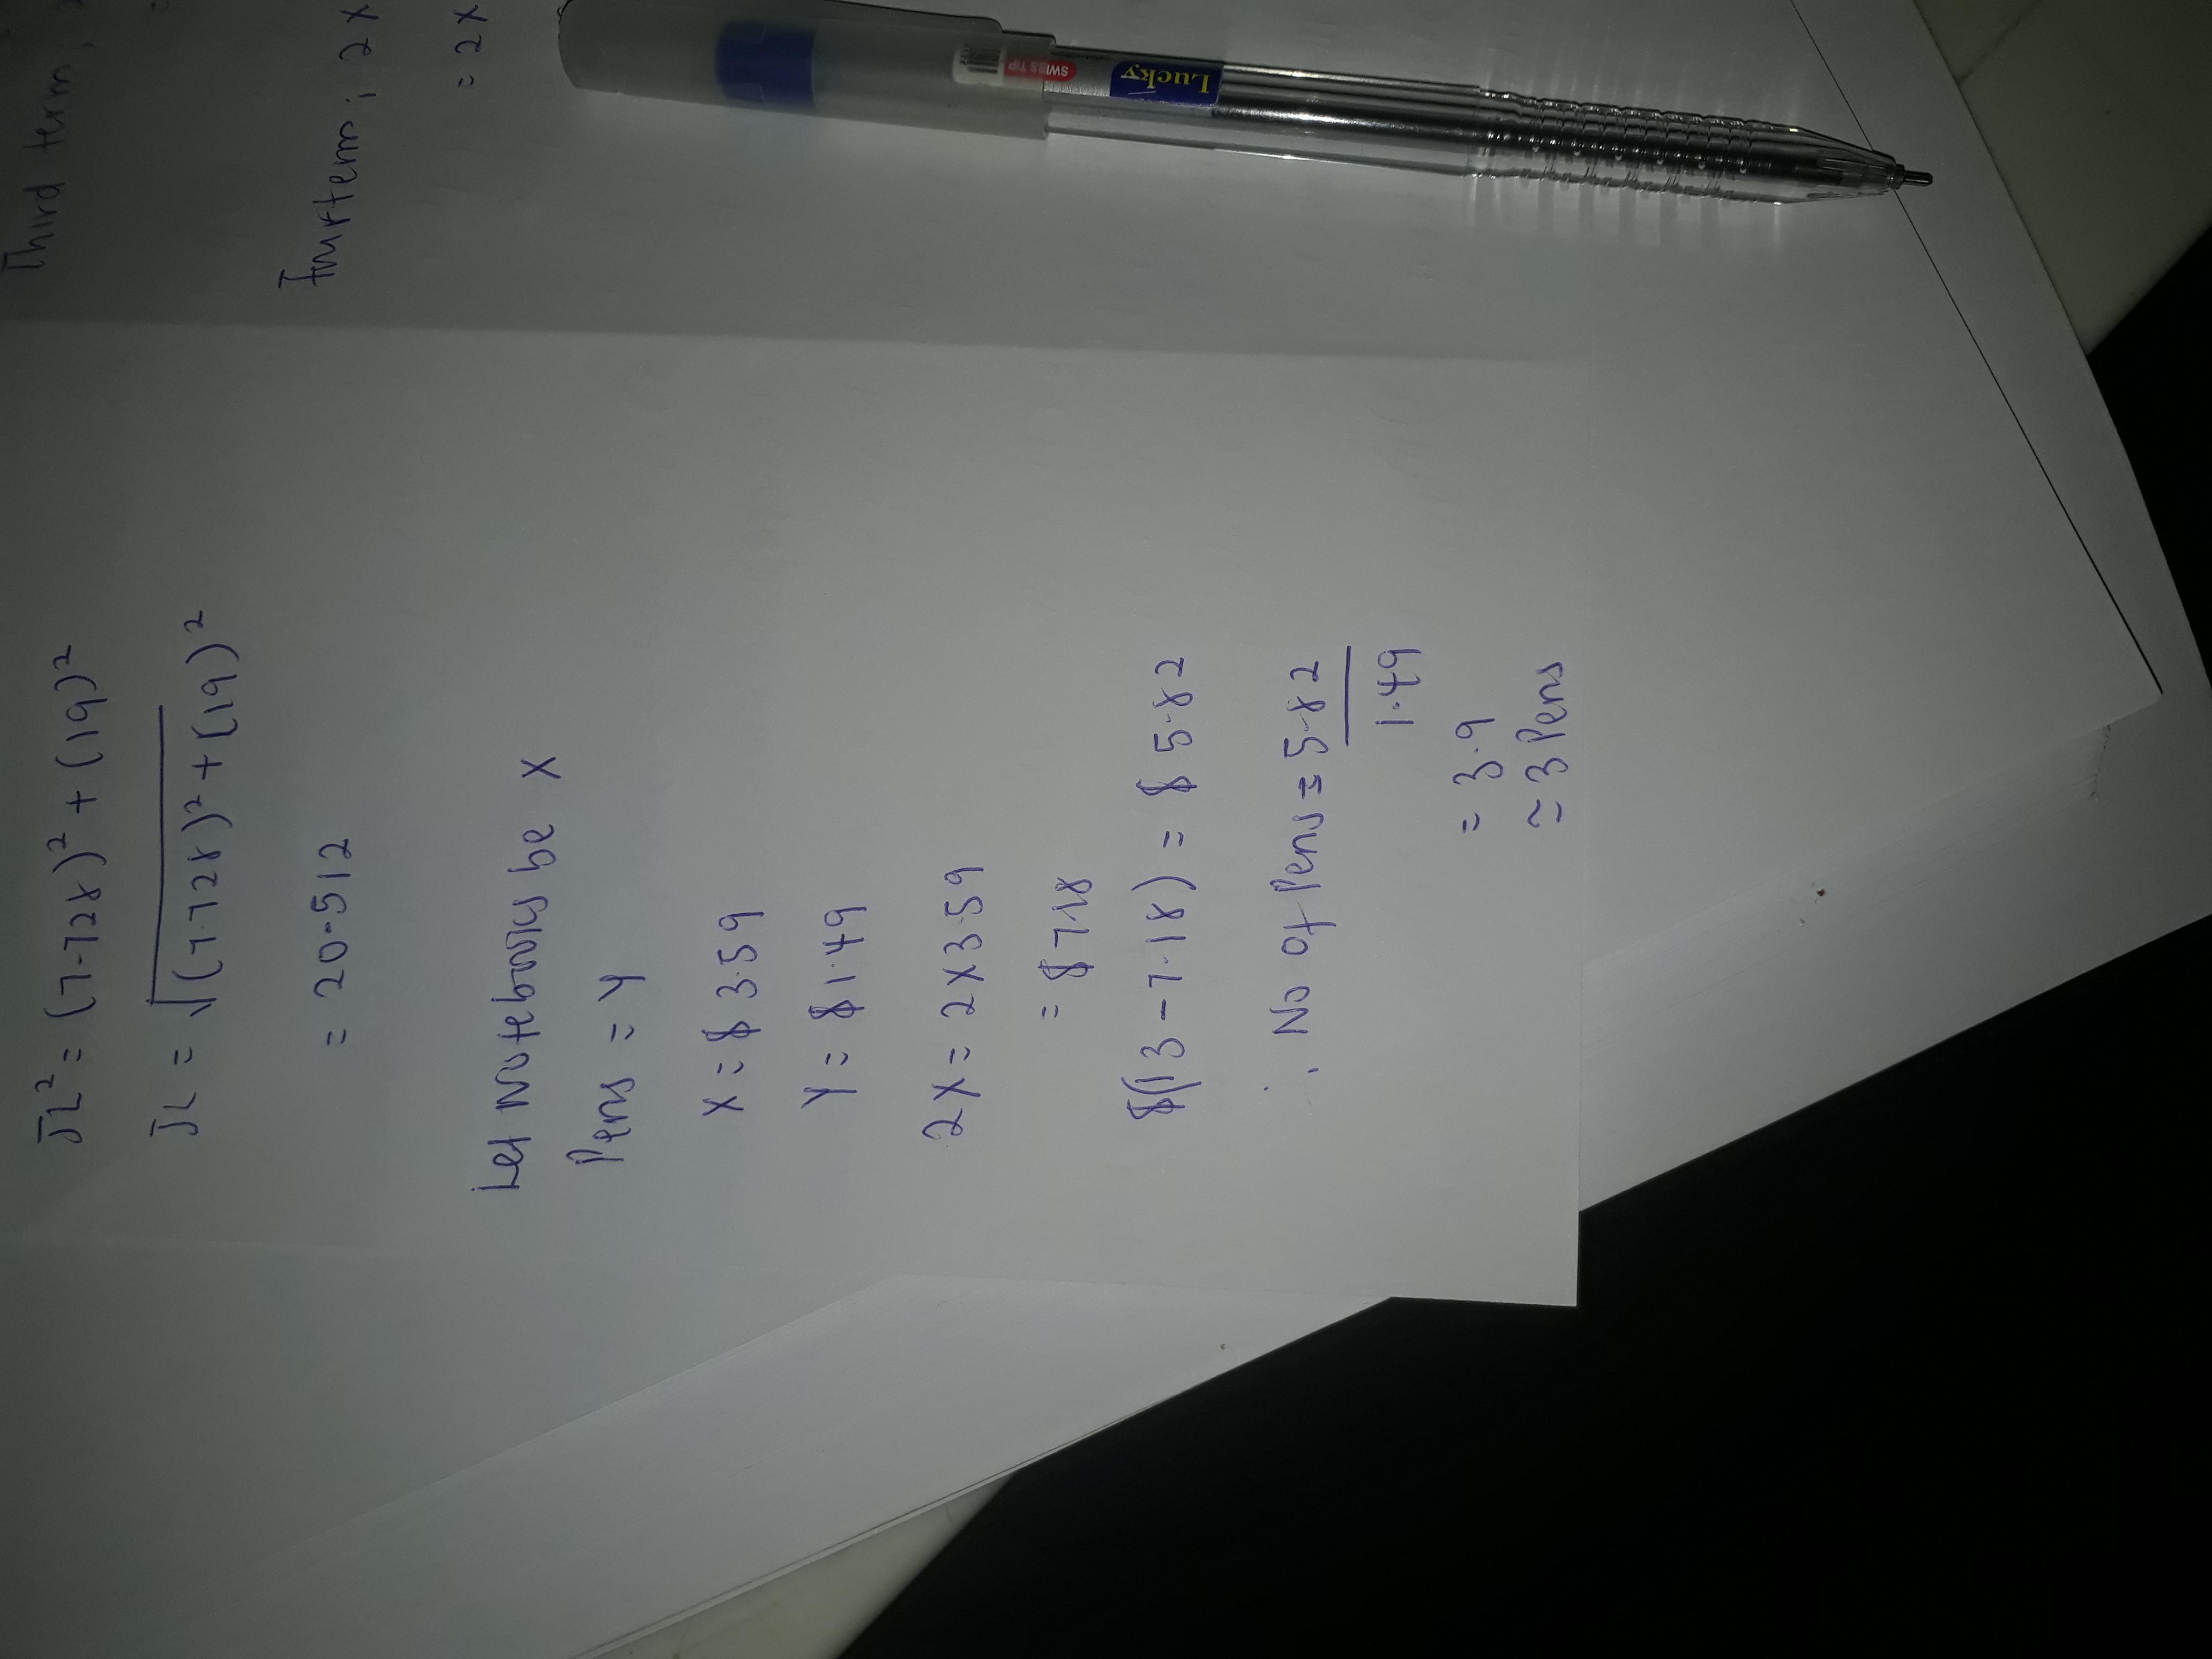 JL² = (7.728)² + (19)²
JL = √(7.728)² + (19)²
= 20.512
Let notebooks be x
Pens = y
x = $ 3.59
y = $ 1.49
2x = 2 x 3.59
= $ 7.18
$(13 - 7.18) = $ 5.82
∴ No of Pens = 5.82
1.49
= 3.9
≃ 3 Pens
Third term,
2x
= 2x
Lucky
SWISS TIP